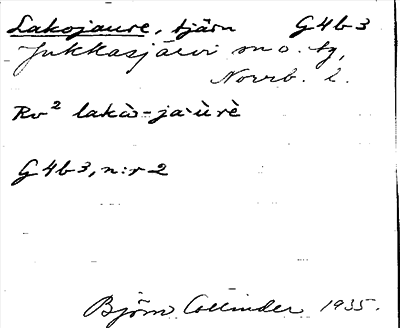 Lakojaure, tjärn G4b3
Jukkasjärvi sn o. tg,
Norrb. l.
Rv² lakàˋ-ja·ùrè
G4b3, n:r 2
Björn Collinder 1935.